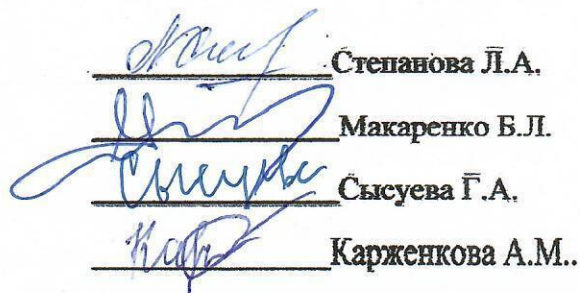 Степанова Л.А.
Макаренко Б.Л.
Сысуева Г.А.
Карженкова А.М..